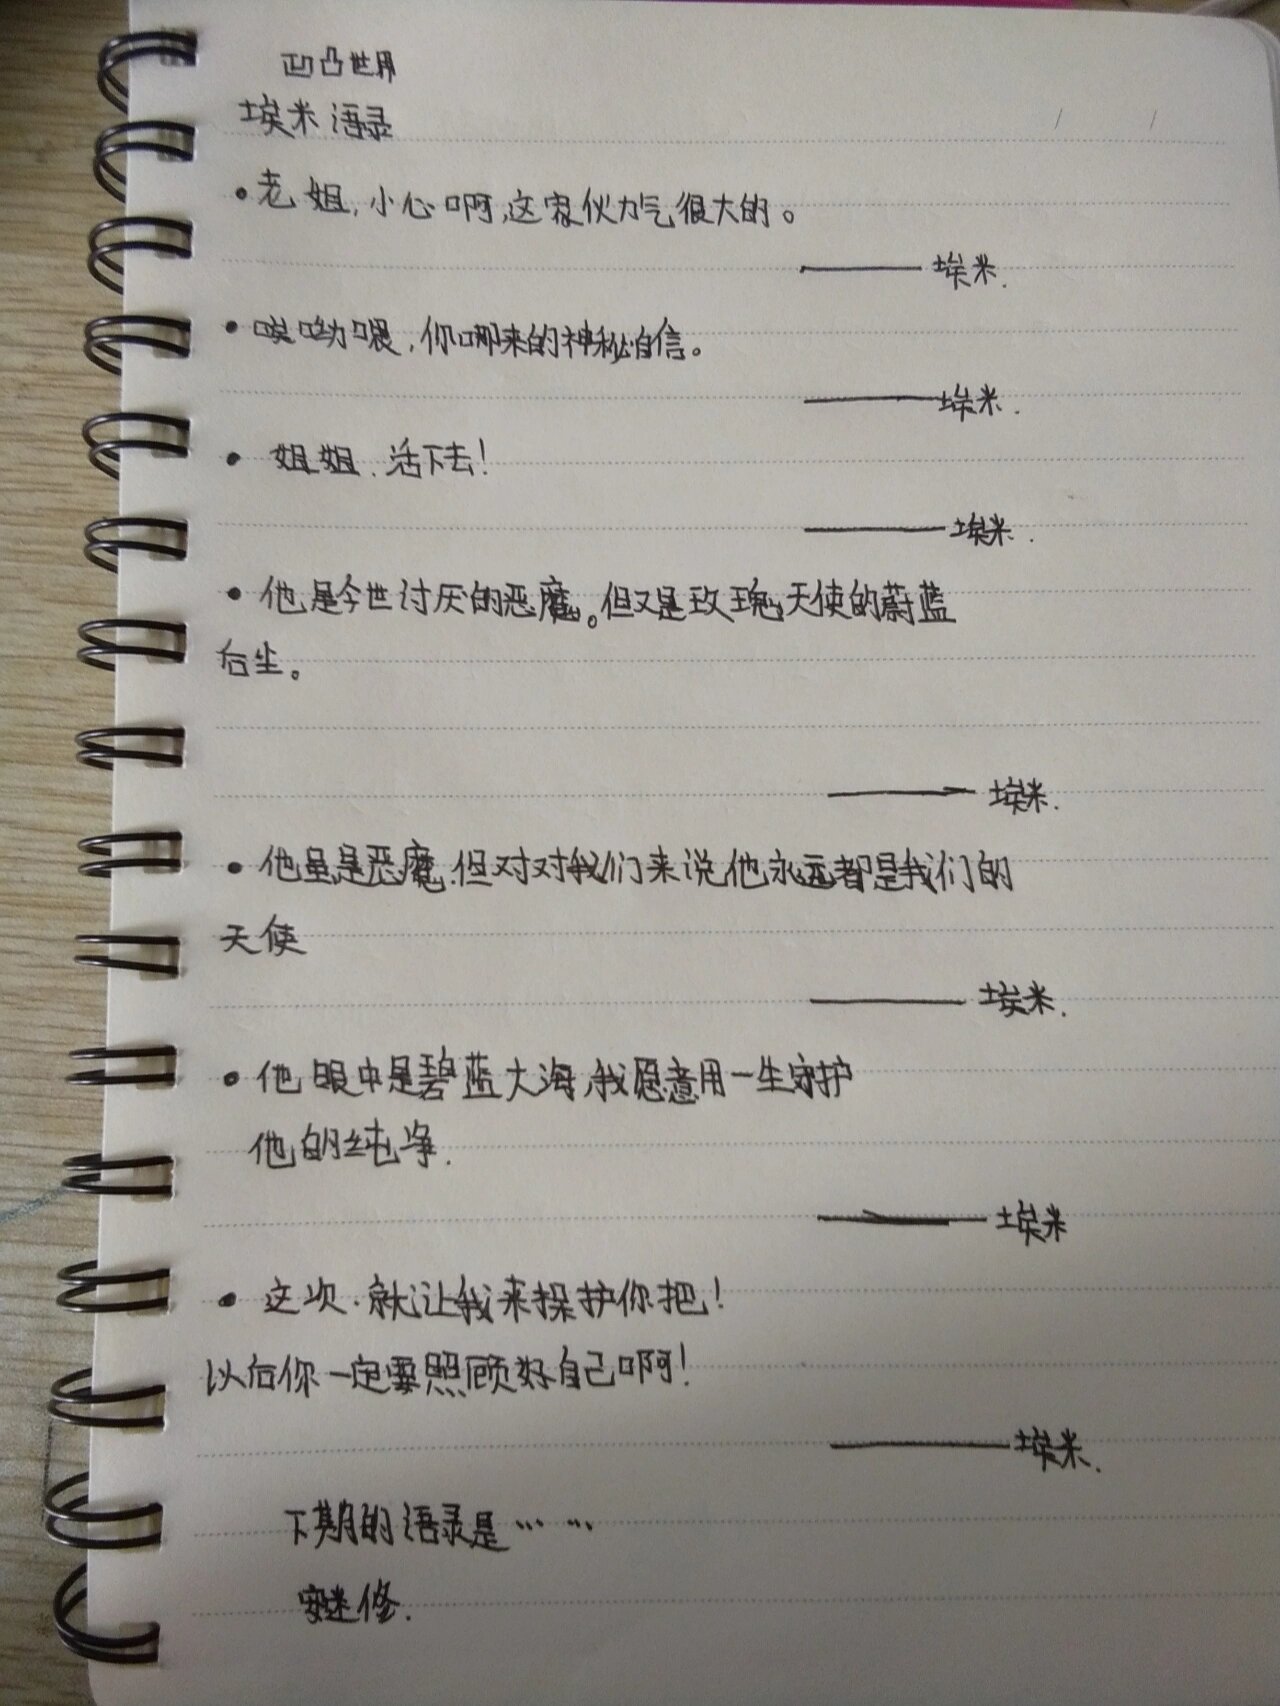 凹凸世界
埃米语录
•老姐,小心啊,这家伙力气很大的。
——埃米.
•唉呦喂,你哪来的神秘自信。
——埃米.
•姐姐、活下去!
——埃米.
•他是今世讨厌的恶魔。但又是玫瑰天使的蔚蓝
后尘。
——埃米.
•他虽是恶魔.但对对我们来说他永远都是我们的
天使
——埃米.
•他眼中是碧蓝大海,我愿意用一生守护
他的纯净.
——埃米
•这次.就让我来保护你把!
以后你一定要照顾好自己啊!
——埃米.
下期的语录是……
安迷修.